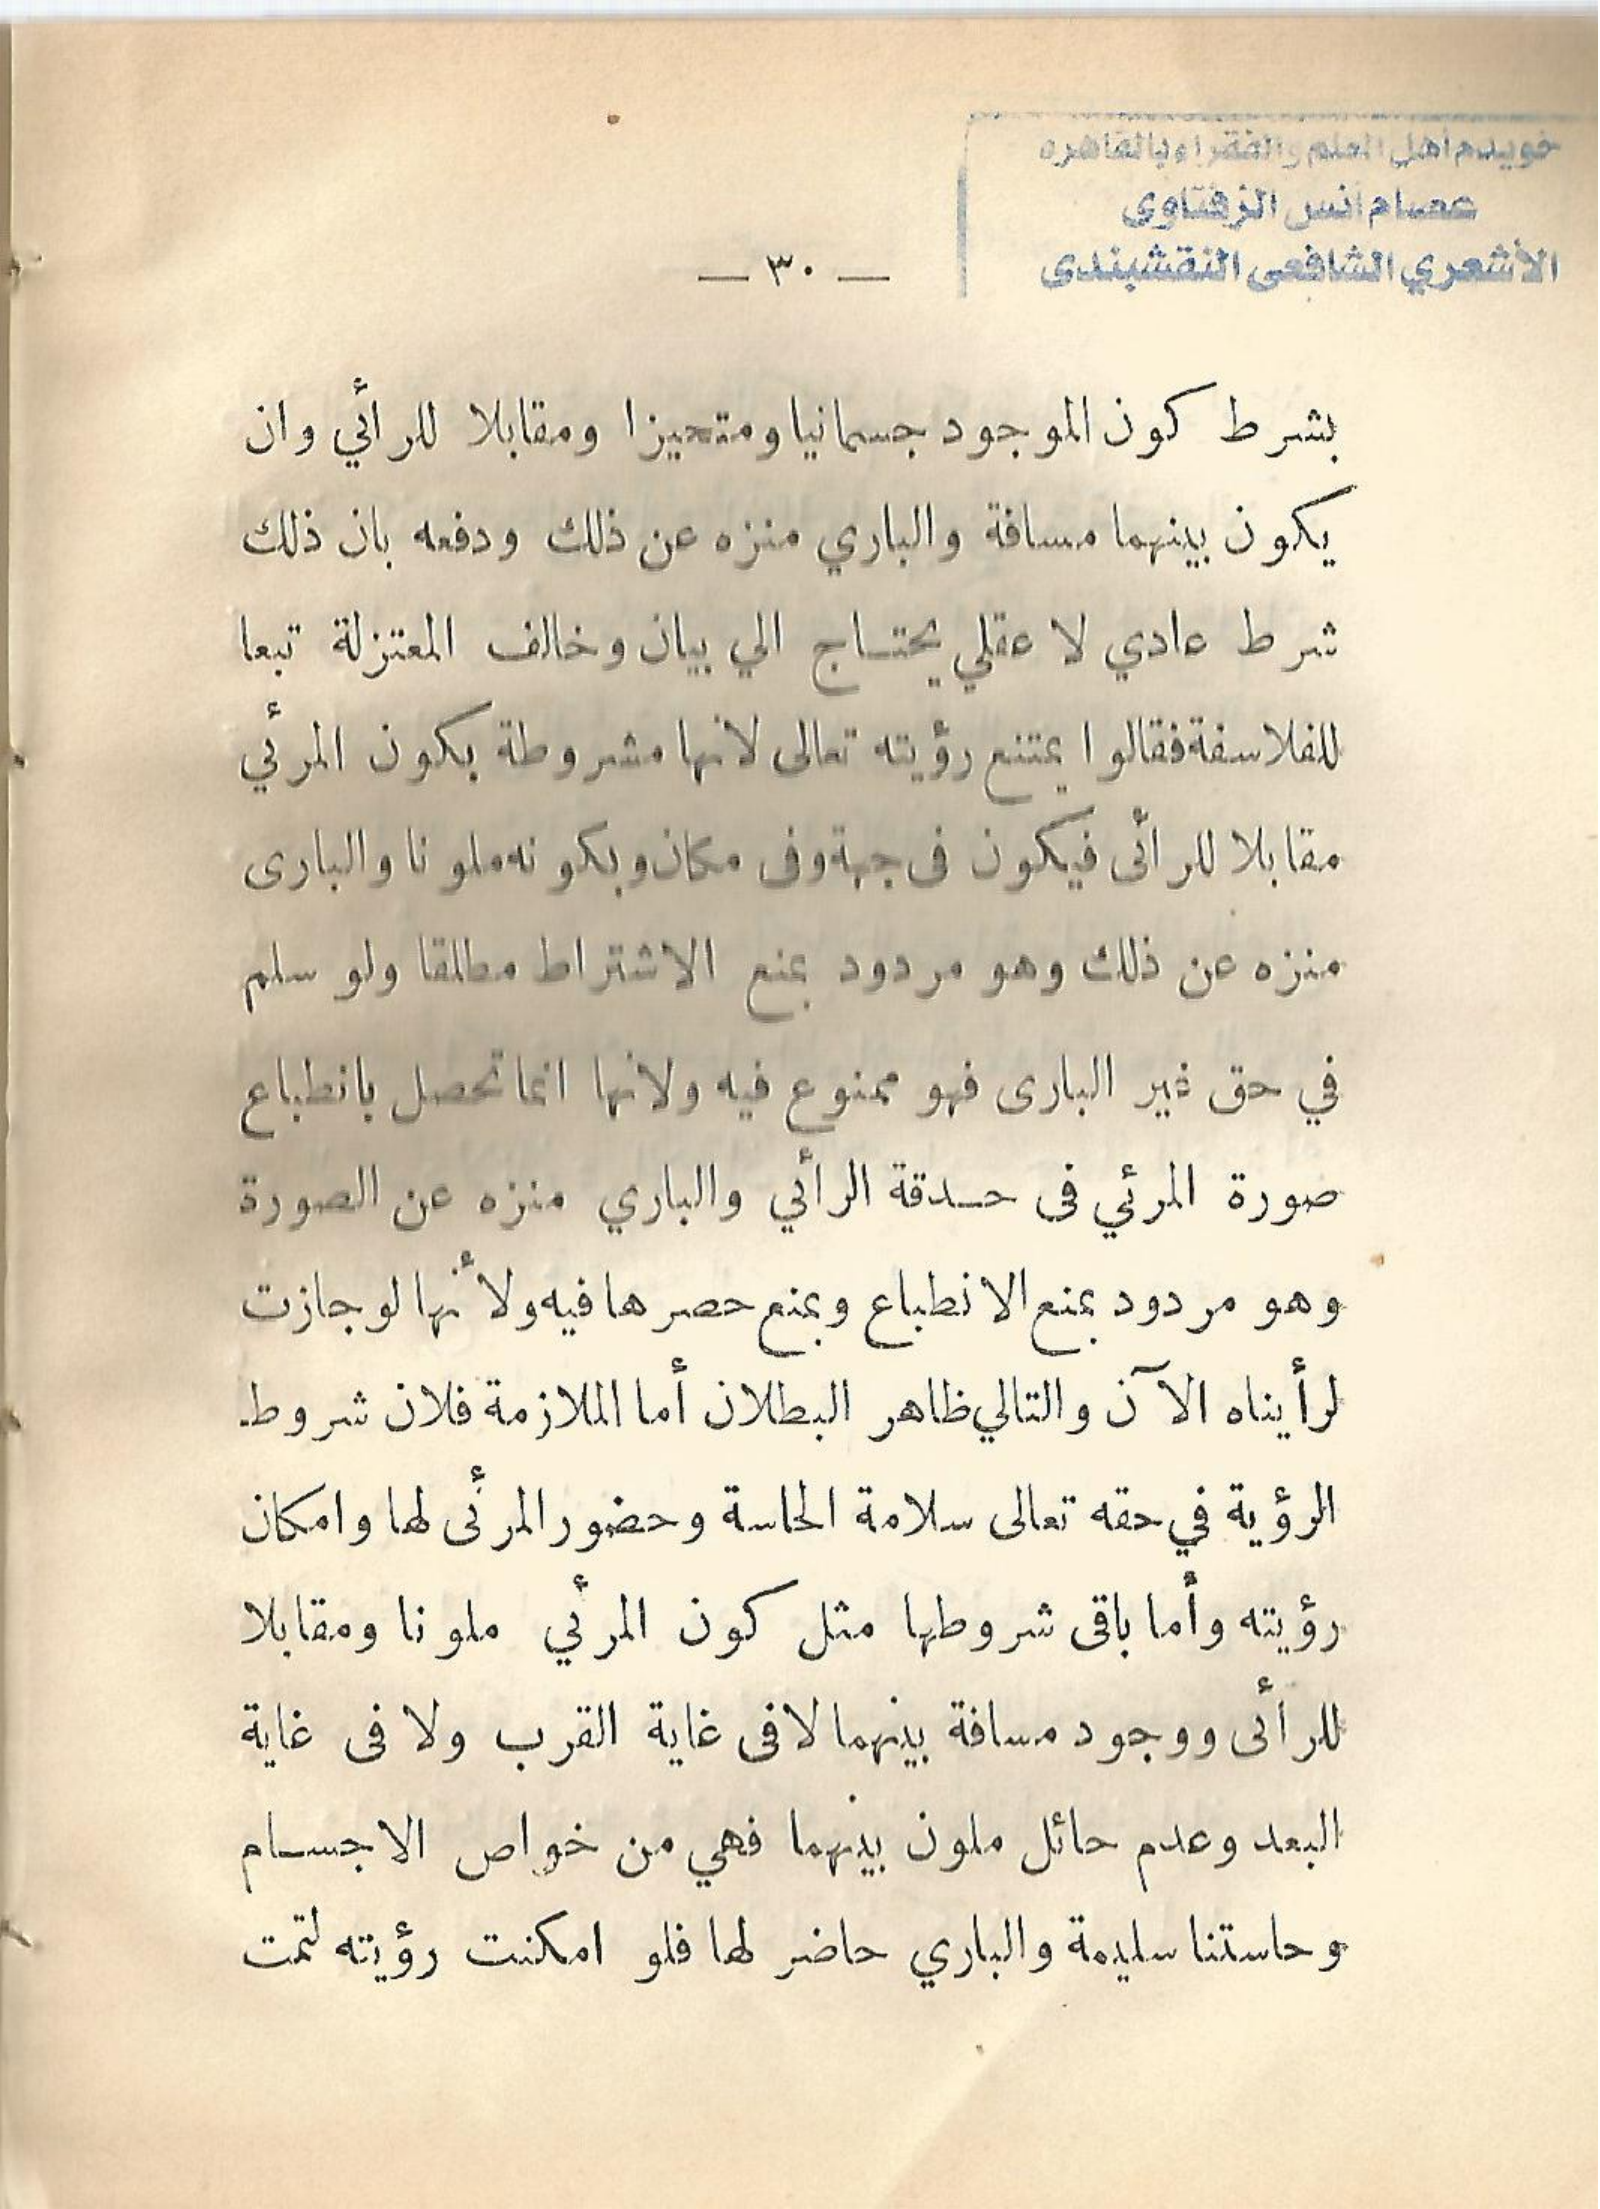 خويدم أهل العلم والفقراء بالقاهره
عصام أنس الزفتاوى
الأشعري الشافعى النقشبندى
— ٣٠ —
بشرط كون الموجود جسمانيا ومتحيزا ومقابلا للرأئي وان
يكون بينهما مسافة والباري منزه عن ذلك ودفعه بان ذلك
شرط عادي لا عقلي يحتاج الي بيان وخالف المعتزلة تبعا
للفلاسفة فقالوا يمتنع رؤيته تعالى لانها مشروطة بكون المرئي
مقابلا للرأئى فيكون فى جهة وفى مكان وبكونه ملونا والبارى
منزه عن ذلك وهو مردود بمنع الاشتراط مطلقا ولو سلم
في حق غير البارى فهو ممنوع فيه ولانها انما تحصل بانطباع
صورة المرئي فى حدقة الرأئي والباري منزه عن الصورة
وهو مردود بمنع الانطباع وبمنع حصرها فيه ولأنها لو جازت
لرأيناه الآن والتالي ظاهر البطلان أما الملازمة فلان شروط
الرؤية في حقه تعالى سلامة الحاسة وحضور المرئى لها وامكان
رؤيته وأما باقى شروطها مثل كون المرئي ملونا ومقابلا
للرأئى ووجود مسافة بينهما لا فى غاية القرب ولا فى غاية
البعد وعدم حائل ملون بينهما فهي من خواص الاجسام
وحاستنا سليمة والباري حاضر لها فلو امكنت رؤيته لتمت